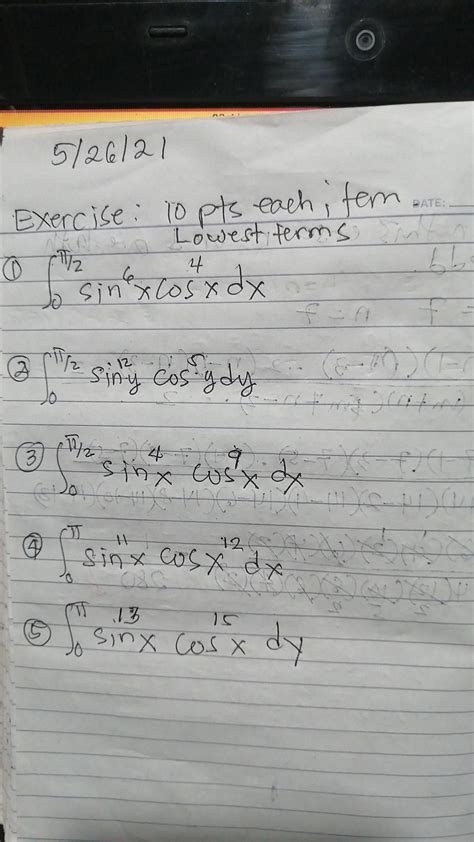 5/26/21
Exercise: 10 pts each item
DATE:
Lowest terms
① ∫₀^π/2 sin⁶x cos⁴x dx
② ∫₀^π/2 sin¹²y cos⁵y dy
③ ∫₀^π/2 sin⁴x cos⁹x dx
④ ∫₀^π sin¹¹x cosx¹² dx
⑤ ∫₀^π sin¹³x cos¹⁵x dy